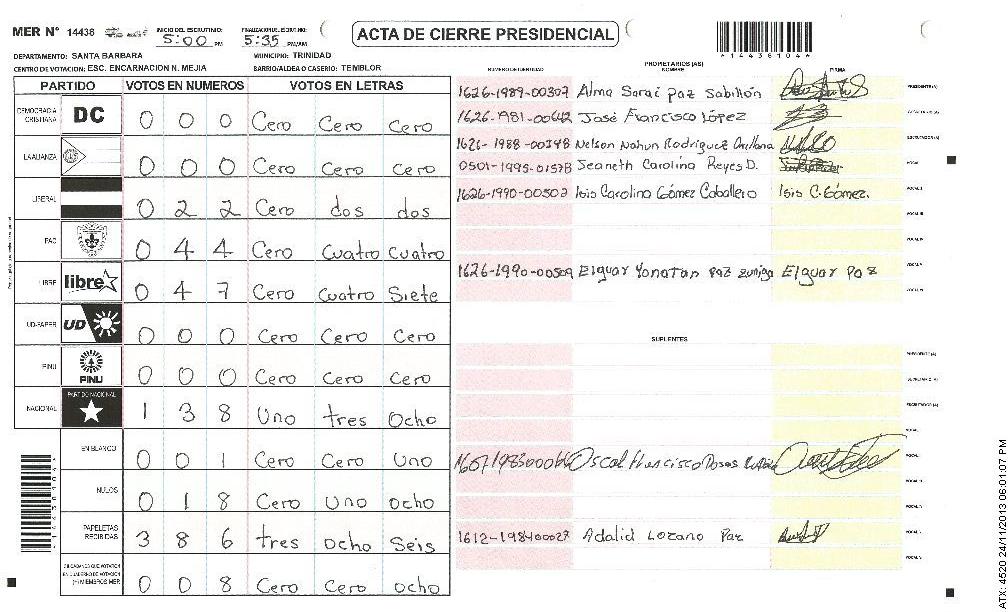 MER Nº 14438 INICIO DEL ESCRUTINIO: 5:00 PM FINALIZACION DEL ESCRUTINIO: 5:35 PM/AM ACTA DE CIERRE PRESIDENCIAL *14438104*
DEPARTAMENTO: SANTA BARBARA MUNICIPIO: TRINIDAD
CENTRO DE VOTACION: ESC. ENCARNACION N. MEJIA BARRIO/ALDEA O CASERIO: TEMBLOR
PARTIDO VOTOS EN NUMEROS VOTOS EN LETRAS
DEMOCRACIA CRISTIANA DC 0 0 0 Cero Cero Cero
LA ALIANZA 0 0 0 Cero Cero Cero
LIBERAL 0 2 2 Cero dos dos
PAC 0 4 4 Cero Cuatro Cuatro
LIBRE libre 0 4 7 Cero Cuatro Siete
UD-FAPER UD 0 0 0 Cero Cero Cero
PINU PINU 0 0 0 Cero Cero Cero
NACIONAL PARTIDO NACIONAL 1 3 8 Uno tres Ocho
EN BLANCO 0 0 1 Cero Cero Uno
NULOS 0 1 8 Cero Uno ocho
PAPELETAS RECIBIDAS 3 8 6 tres ocho Seis
CIUDADANOS QUE VOTARON EN CUADERNO DE VOTACION (+) MIEMBROS MER 0 0 8 Cero Cero ocho
PROPIETARIOS (AS)
NUMERO DE IDENTIDAD NOMBRE FIRMA
1626-1989-00307 Alma Sarai Paz Sabillón PRESIDENTE (A)
1626-1981-00642 José Francisco López SECRETARIO (A)
1626-1988-00348 Nelson Nahun Rodriguez Orellana ESCRUTADOR (A)
0501-1995-01578 Jeaneth Carolina Reyes D. VOCAL I
1626-1990-00503 Isis Carolina Gómez Caballero Isis C. Gómez. VOCAL II
VOCAL III
VOCAL IV
1626-1990-00509 Elguar Yonatan Paz Zuniga Elguar Paz VOCAL V
VOCAL VI
SUPLENTES
PRESIDENTE (A)
SECRETARIO (A)
ESCRUTADOR (A)
VOCAL I
Oscar Francisco VOCAL II
VOCAL III
VOCAL IV
1612-198400027 Adalid Lozano Paz VOCAL V
VOCAL VI
ATX: 4520 24/11/2013 06:01:07 PM